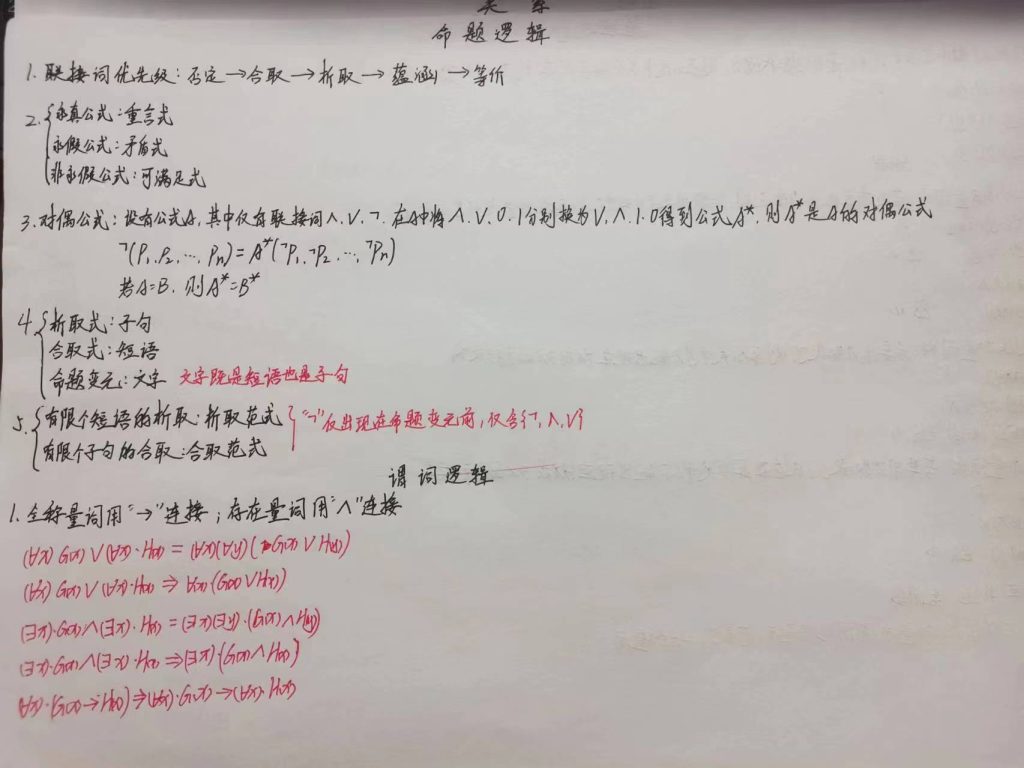 命题逻辑
1. 联接词优先级：否定→合取→析取→蕴涵→等价
2. 永真公式：重言式
永假公式：矛盾式
非永假公式：可满足式
3. 对偶公式：设有公式A，其中仅有联接词∧.∨.¬. 在A中将∧.∨.0.1分别换为∨.∧.1.0得到公式A*，则A*是A的对偶公式
¬(P₁.P₂.…,Pn)=A*(¬P₁.¬P₂.…,¬Pn)
若A=B，则A*=B*
4. 析取式：子句
合取式：短语
命题变元：文字 文字既是短语也是子句
5. 有限个短语的析取：析取范式 "¬"仅出现在命题变元前，仅含{¬,∧,∨}
有限个子句的合取：合取范式
谓词逻辑
1. 全称量词用"→"连接；存在量词用"∧"连接
(∀x)G(x)∨(∀x)·H(x)=(∀x)(∀y)(G(x)∨H(y))
(∀x)G(x)∨(∀x)·H(x)⇒∀(x)(G(x)∨H(x))
(∃x)·G(x)∧(∃x)·H(x)=(∃x)(∃y)·(G(x)∧H(y))
(∃x)·G(x)∧(∃x)·H(x)⇒(∃x)·(G(x)∧H(x))
∀(x)·(G(x)→H(x))⇒(∀x)·G(x)→(∀x)·H(x)